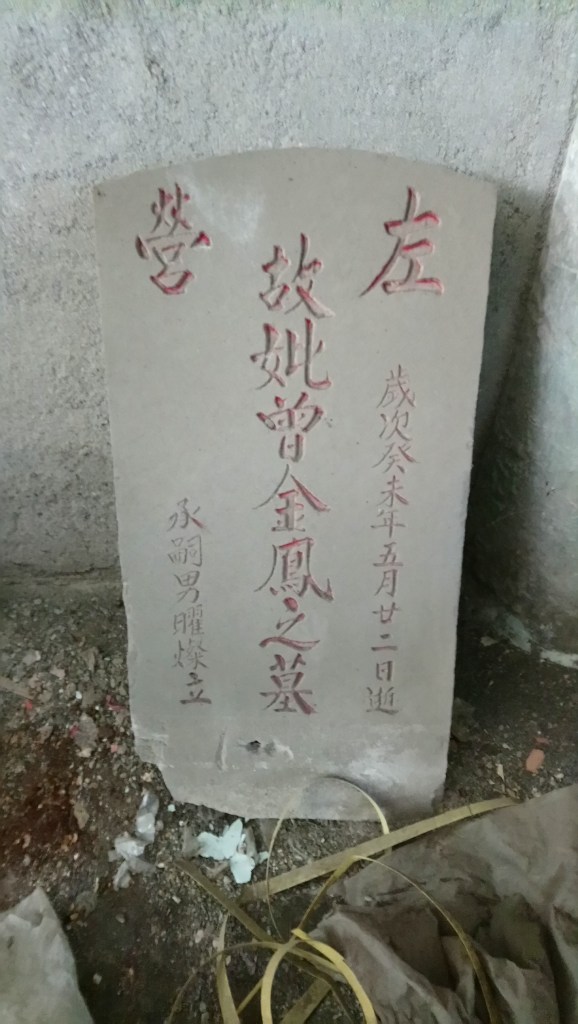 左營
歲次癸未年五月廿二日逝
故妣曾金鳳之墓
承嗣男曜燦立